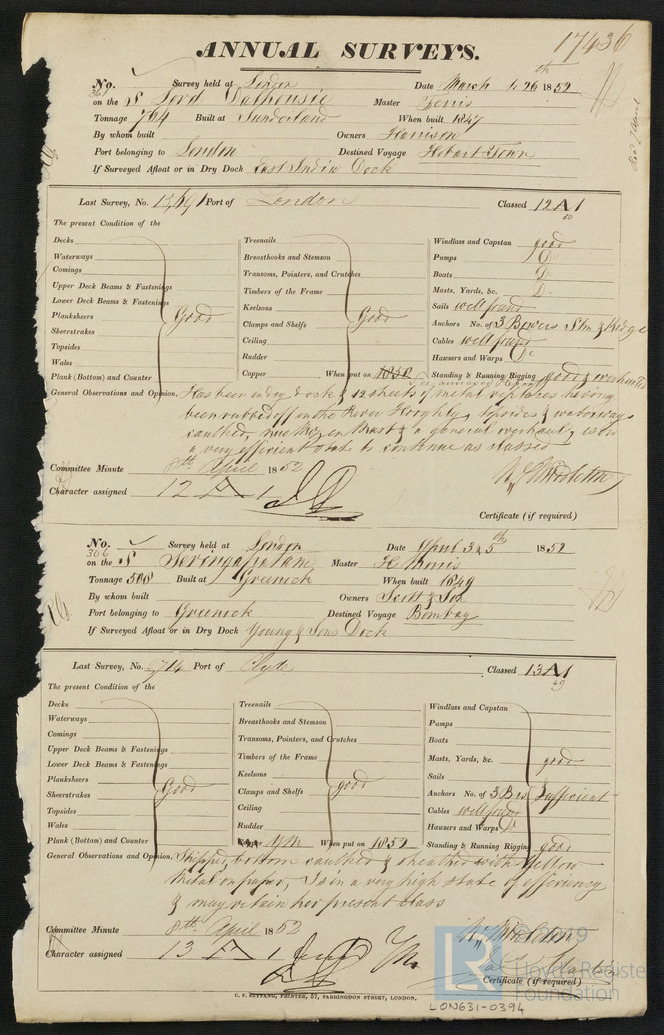 17436
ANNUAL SURVEYS.
No. Survey held at London Date March to 26th 1852
on the S Lord Dalhousie Master Ferris
Tonnage 764 Built at Sunderland When built 1847
By whom built Owners Harrison
Port belonging to London Destined Voyage Hobart Town
If Surveyed Afloat or in Dry Dock East India Dock
Last Survey, No. 17,691 Port of London Classed 12 A 1
The present Condition of the
Decks
Waterways
Comings
Upper Deck Beams & Fastenings
Lower Deck Beams & Fastenings
Planksheers Good
Sheerstrakes
Topsides
Wales
Plank (Bottom) and Counter
Treenails
Breasthooks and Stemson
Transoms, Pointers, and Crutches
Timbers of the Frame
Keelsons
Clamps and Shelfs Good
Ceiling
Rudder
Copper When put on 1850
Windlass and Capstan good
Pumps Do
Boats Do
Masts, Yards, &c. Do
Sails well found
Anchors No. of 3 Bowers Stm & Kedge
Cables well found
Hawsers and Warps Do
Standing & Running Rigging good & overhauled
General Observations and Opinion. Has been in dry dock & 12 sheets of metal replaces having
been rubbed off in the River Hooghly, topsides & waterways
caulked, new Mizen Mast & a general overhaul, is in
a very efficient state to continue as classed
Committee Minute 8th April 1852
Character assigned 12 A 1
Certificate (if required)
No. 306 Survey held at London Date April 3 & 5th 1852
on the S Seringapatam Master H Morris
Tonnage 500 Built at Greenock When built 1849
By whom built Owners Scott & Son
Port belonging to Greenock Destined Voyage Bombay
If Surveyed Afloat or in Dry Dock Young & Sons Dock
Last Survey, No. 714 Port of Clyde Classed 13 A 1
49
The present Condition of the
Decks
Waterways
Comings
Upper Deck Beams & Fastenings
Lower Deck Beams & Fastenings
Planksheers Good
Sheerstrakes
Topsides
Wales
Plank (Bottom) and Counter
Treenails
Breasthooks and Stemson
Transoms, Pointers, and Crutches
Timbers of the Frame
Keelsons
Clamps and Shelfs good
Ceiling
Rudder
YM When put on 1852
Windlass and Capstan
Pumps
Boats
Masts, Yards, &c. good
Sails
Anchors No. of 3 Brs Sufficient
Cables well found
Hawsers and Warps Do
Standing & Running Rigging good
General Observations and Opinion. Stripped, bottom caulked & sheathed with Yellow
Metal on paper, Is in a very high state of efficiency
& may retain her present class
Committee Minute 8th April 1852
Character assigned 13 A 1
Certificate (if required)
C. F. SEYFANG, PRINTER, 57, FARRINGDON STREET, LONDON.
© 2019
Lloyd's Register
Foundation
LON631-0394